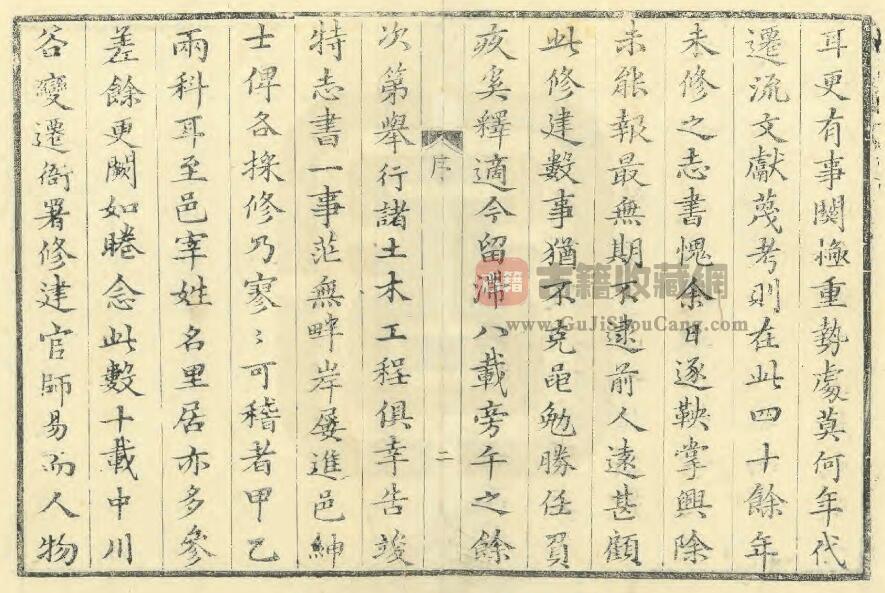 耳更有事關極重勢處莫何年代
遷流文獻蔑考則在此四十餘年
未修之志書愧余日逐鞅掌興除
未能報最無期不逮前人遠甚顧
此修建數事猶不克黽勉勝任負
疚奚釋適今留滯八載旁午之餘
序
二
次第舉行諸土木工程俱幸告竣
特志書一事茫無畔岸屢進邑紳
士俾各採修乃寥〻可稽者甲乙
兩科耳至邑宰姓名里居亦多參
差餘更闕如睠念此數十載中川
谷變遷衙署修建官師易而人物
古籍收藏網
www.GuJiShouCang.com